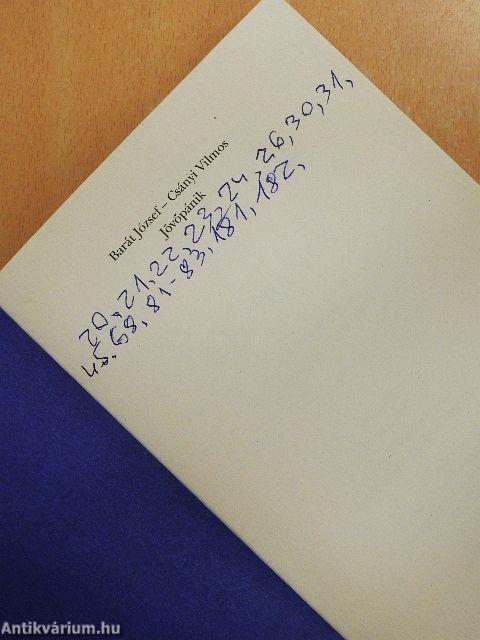 Barát József – Csányi Vilmos
Jövőpánik
20, 21, 22, 23, 24, 26, 30, 31,
68, 81-83, 181, 182,
Antikvárium.hu